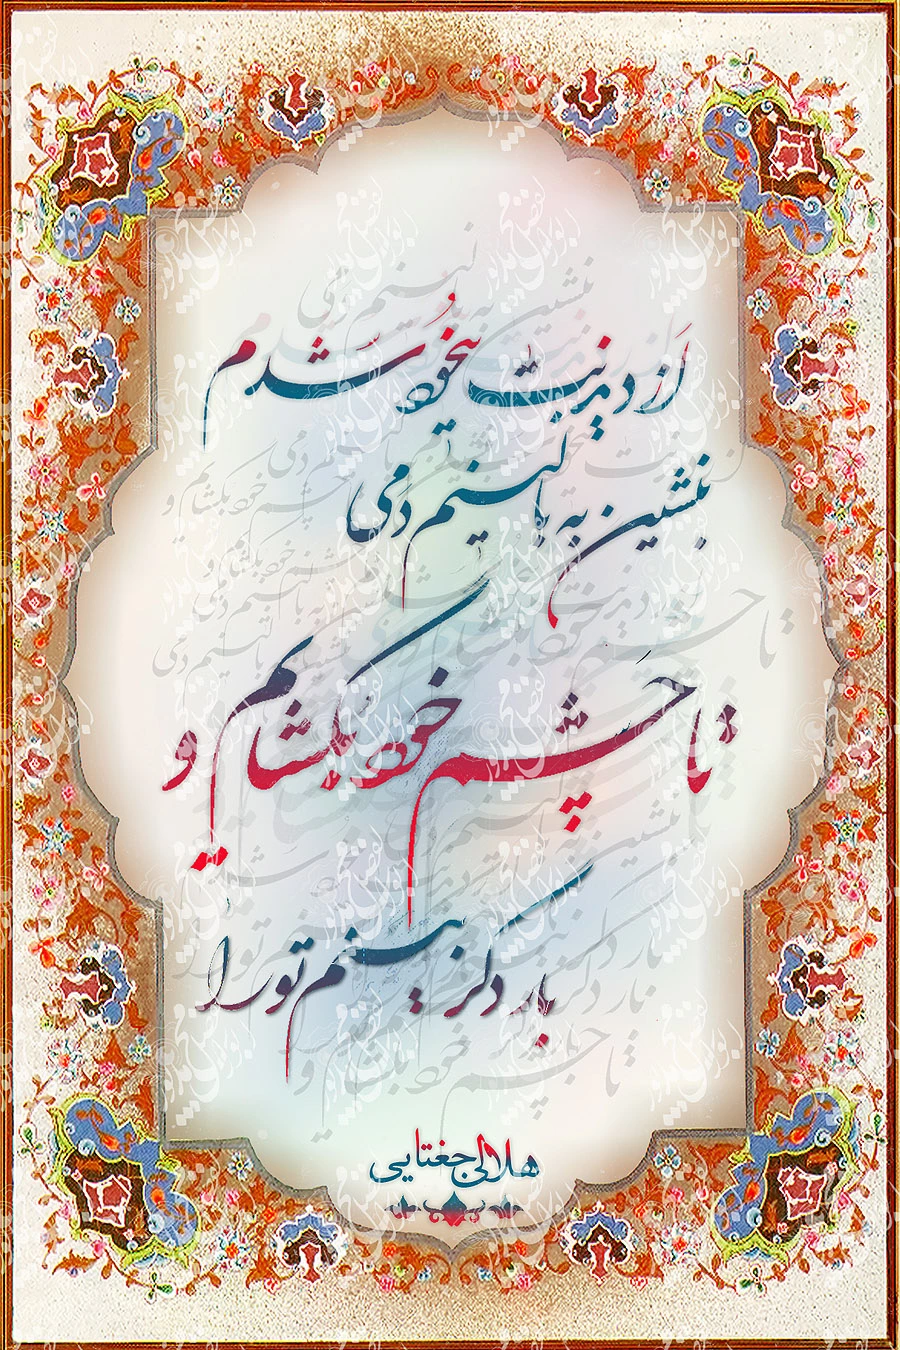 از دیدنت بیخود شدم
بنشین به بالینم دمی
تا چشم خود بگشایم و
بار دگر بینم تو را
هلالی جغتایی